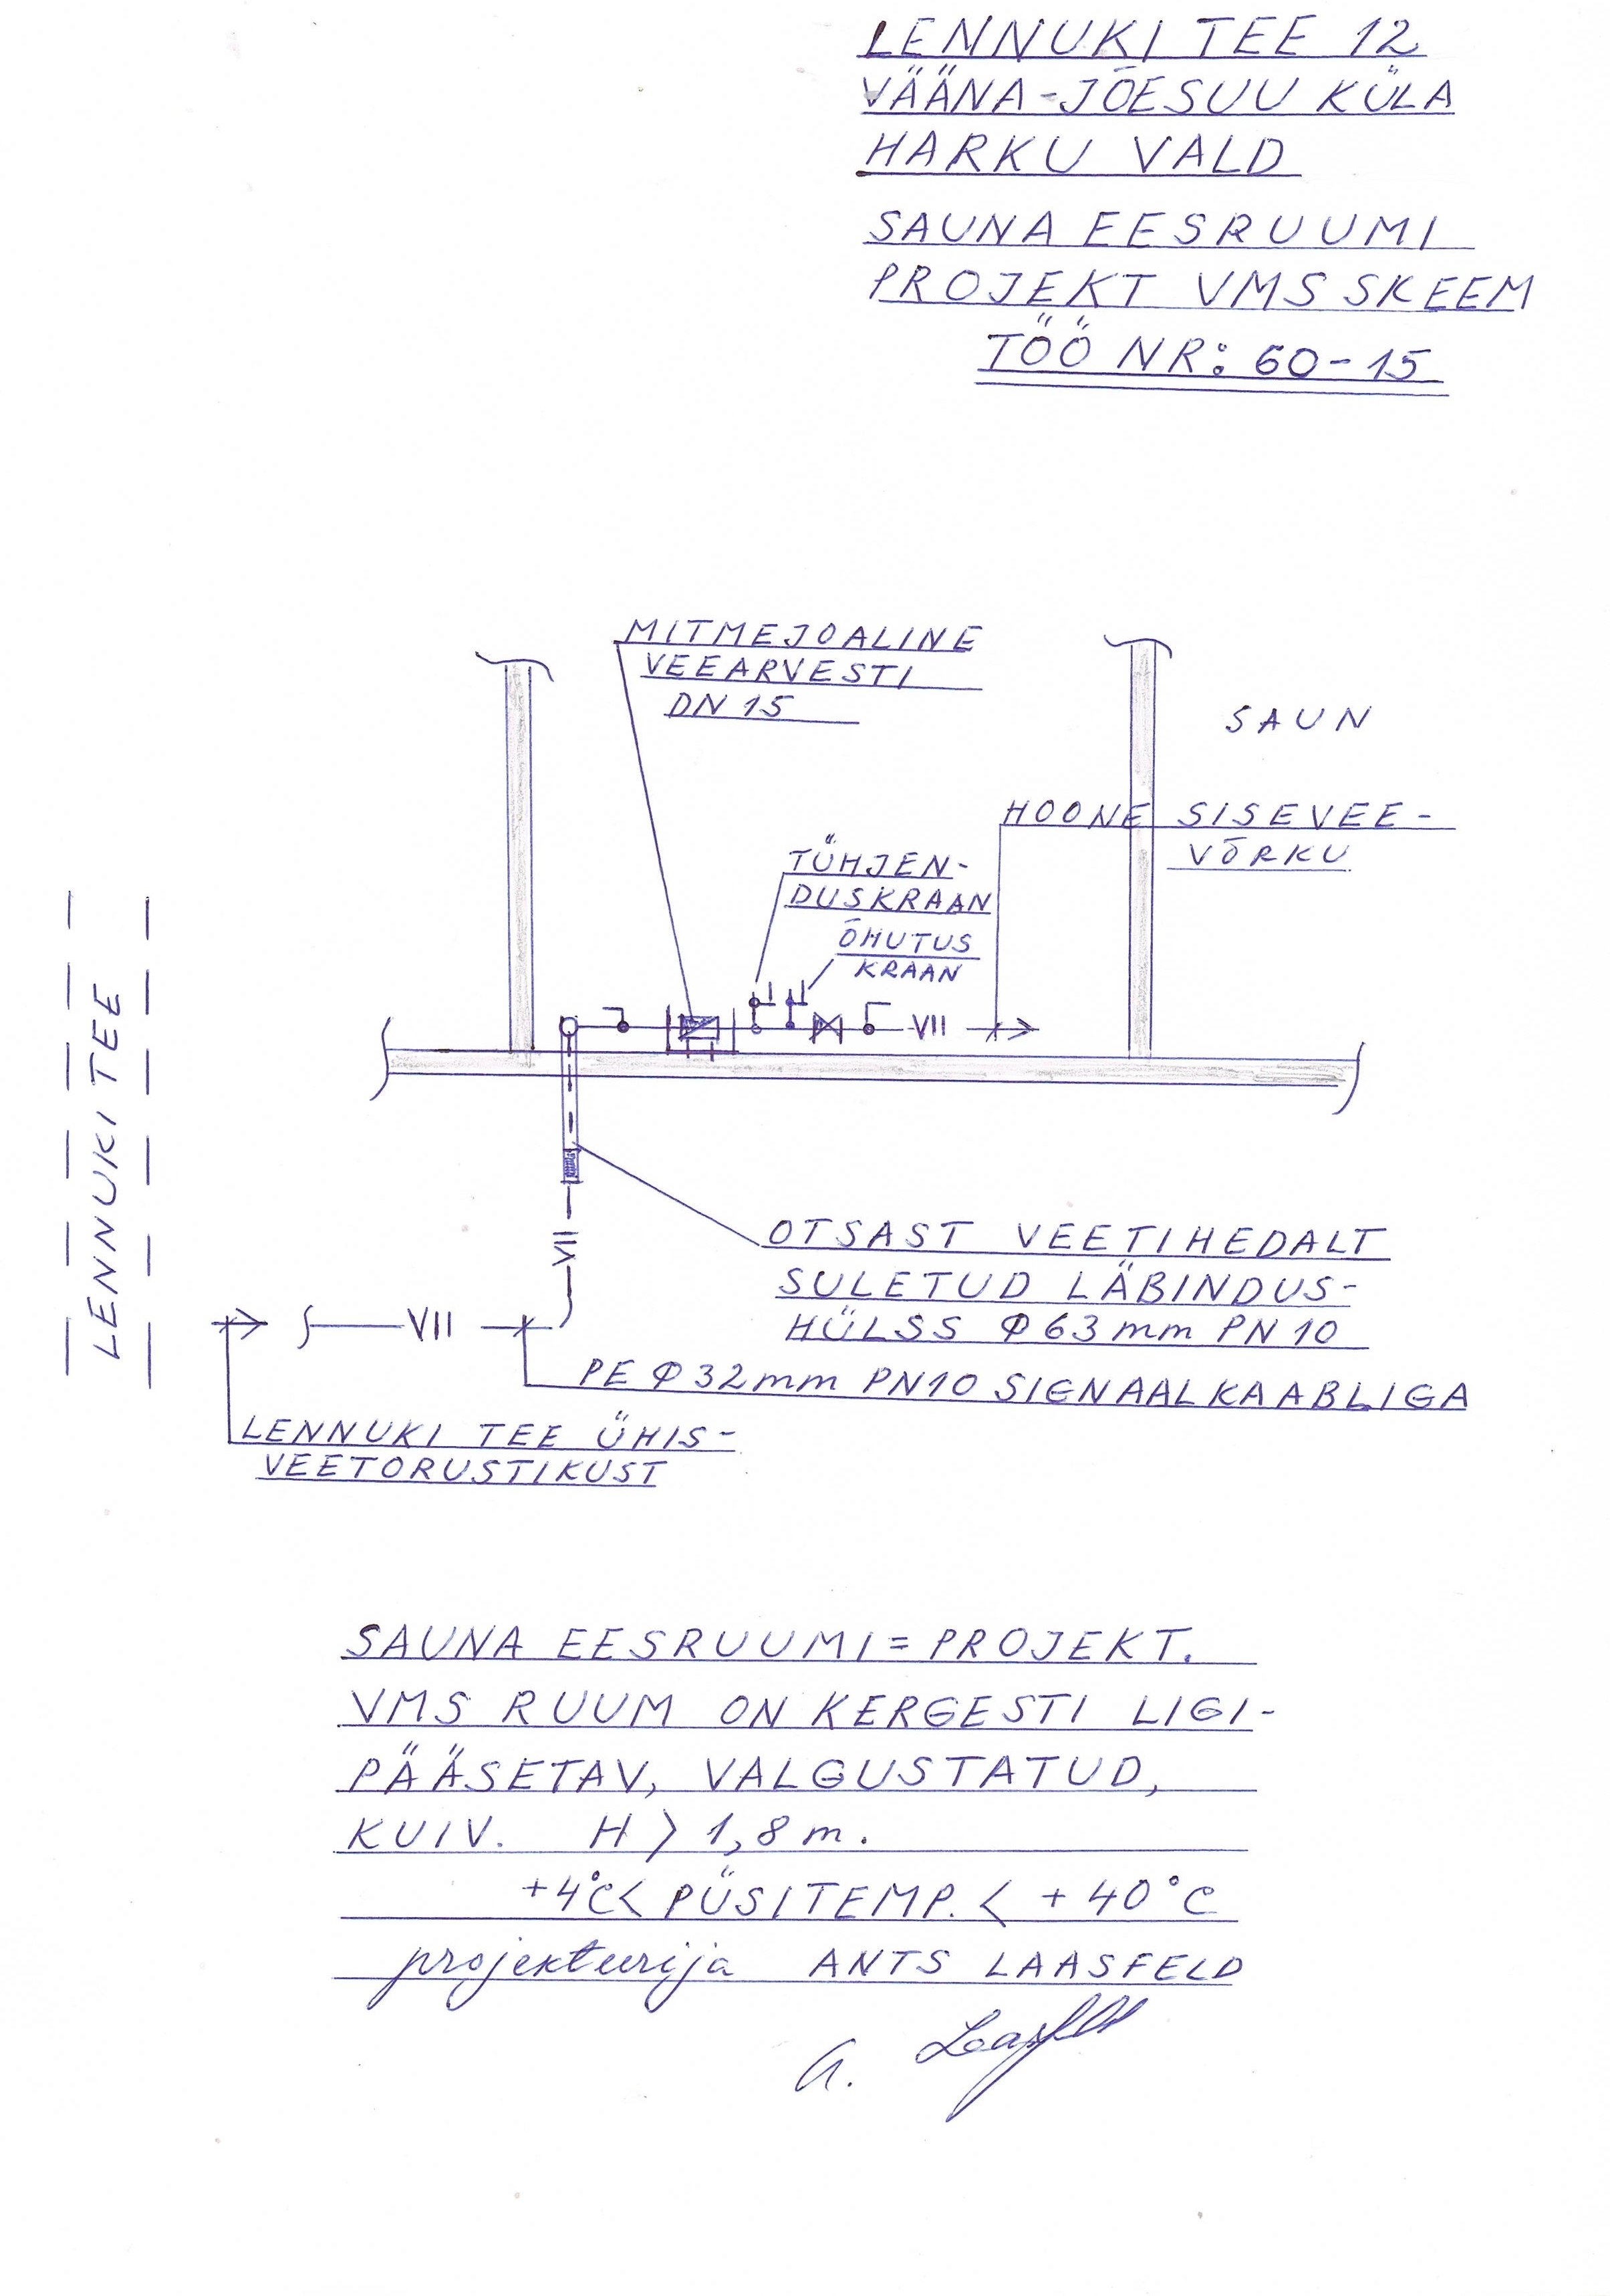 LENNUKI TEE 12
VÄÄNA-JÕESUU KÜLA
HARKU VALD
SAUNA EESRUUMI
PROJEKT VMS SKEEM
TÖÖ NR: 60-15
MITMEJOALINE
VEEARVESTI
DN 15
SAUN
HOONE SISEVEE-
VÕRKU
TÜHJEN-
DUSKRAAN
ÕHUTUS
KRAAN
VII
LENNUKI TEE
VII
OTSAST VEETIHEDALT
SULETUD LÄBINDUS-
HÜLSS Φ63mm PN10
VII
PE Φ32mm PN10 SIGNAALKAABLIGA
LENNUKI TEE ÜHIS-
VEETORUSTIKUST
SAUNA EESRUUMI = PROJEKT.
VMS RUUM ON KERGESTI LIGI-
PÄÄSETAV, VALGUSTATUD,
KUIV. H > 1,8 m.
+4°C < PÜSITEMP. < +40°C
projekteerija ANTS LAASFELD
A. Laasfeld